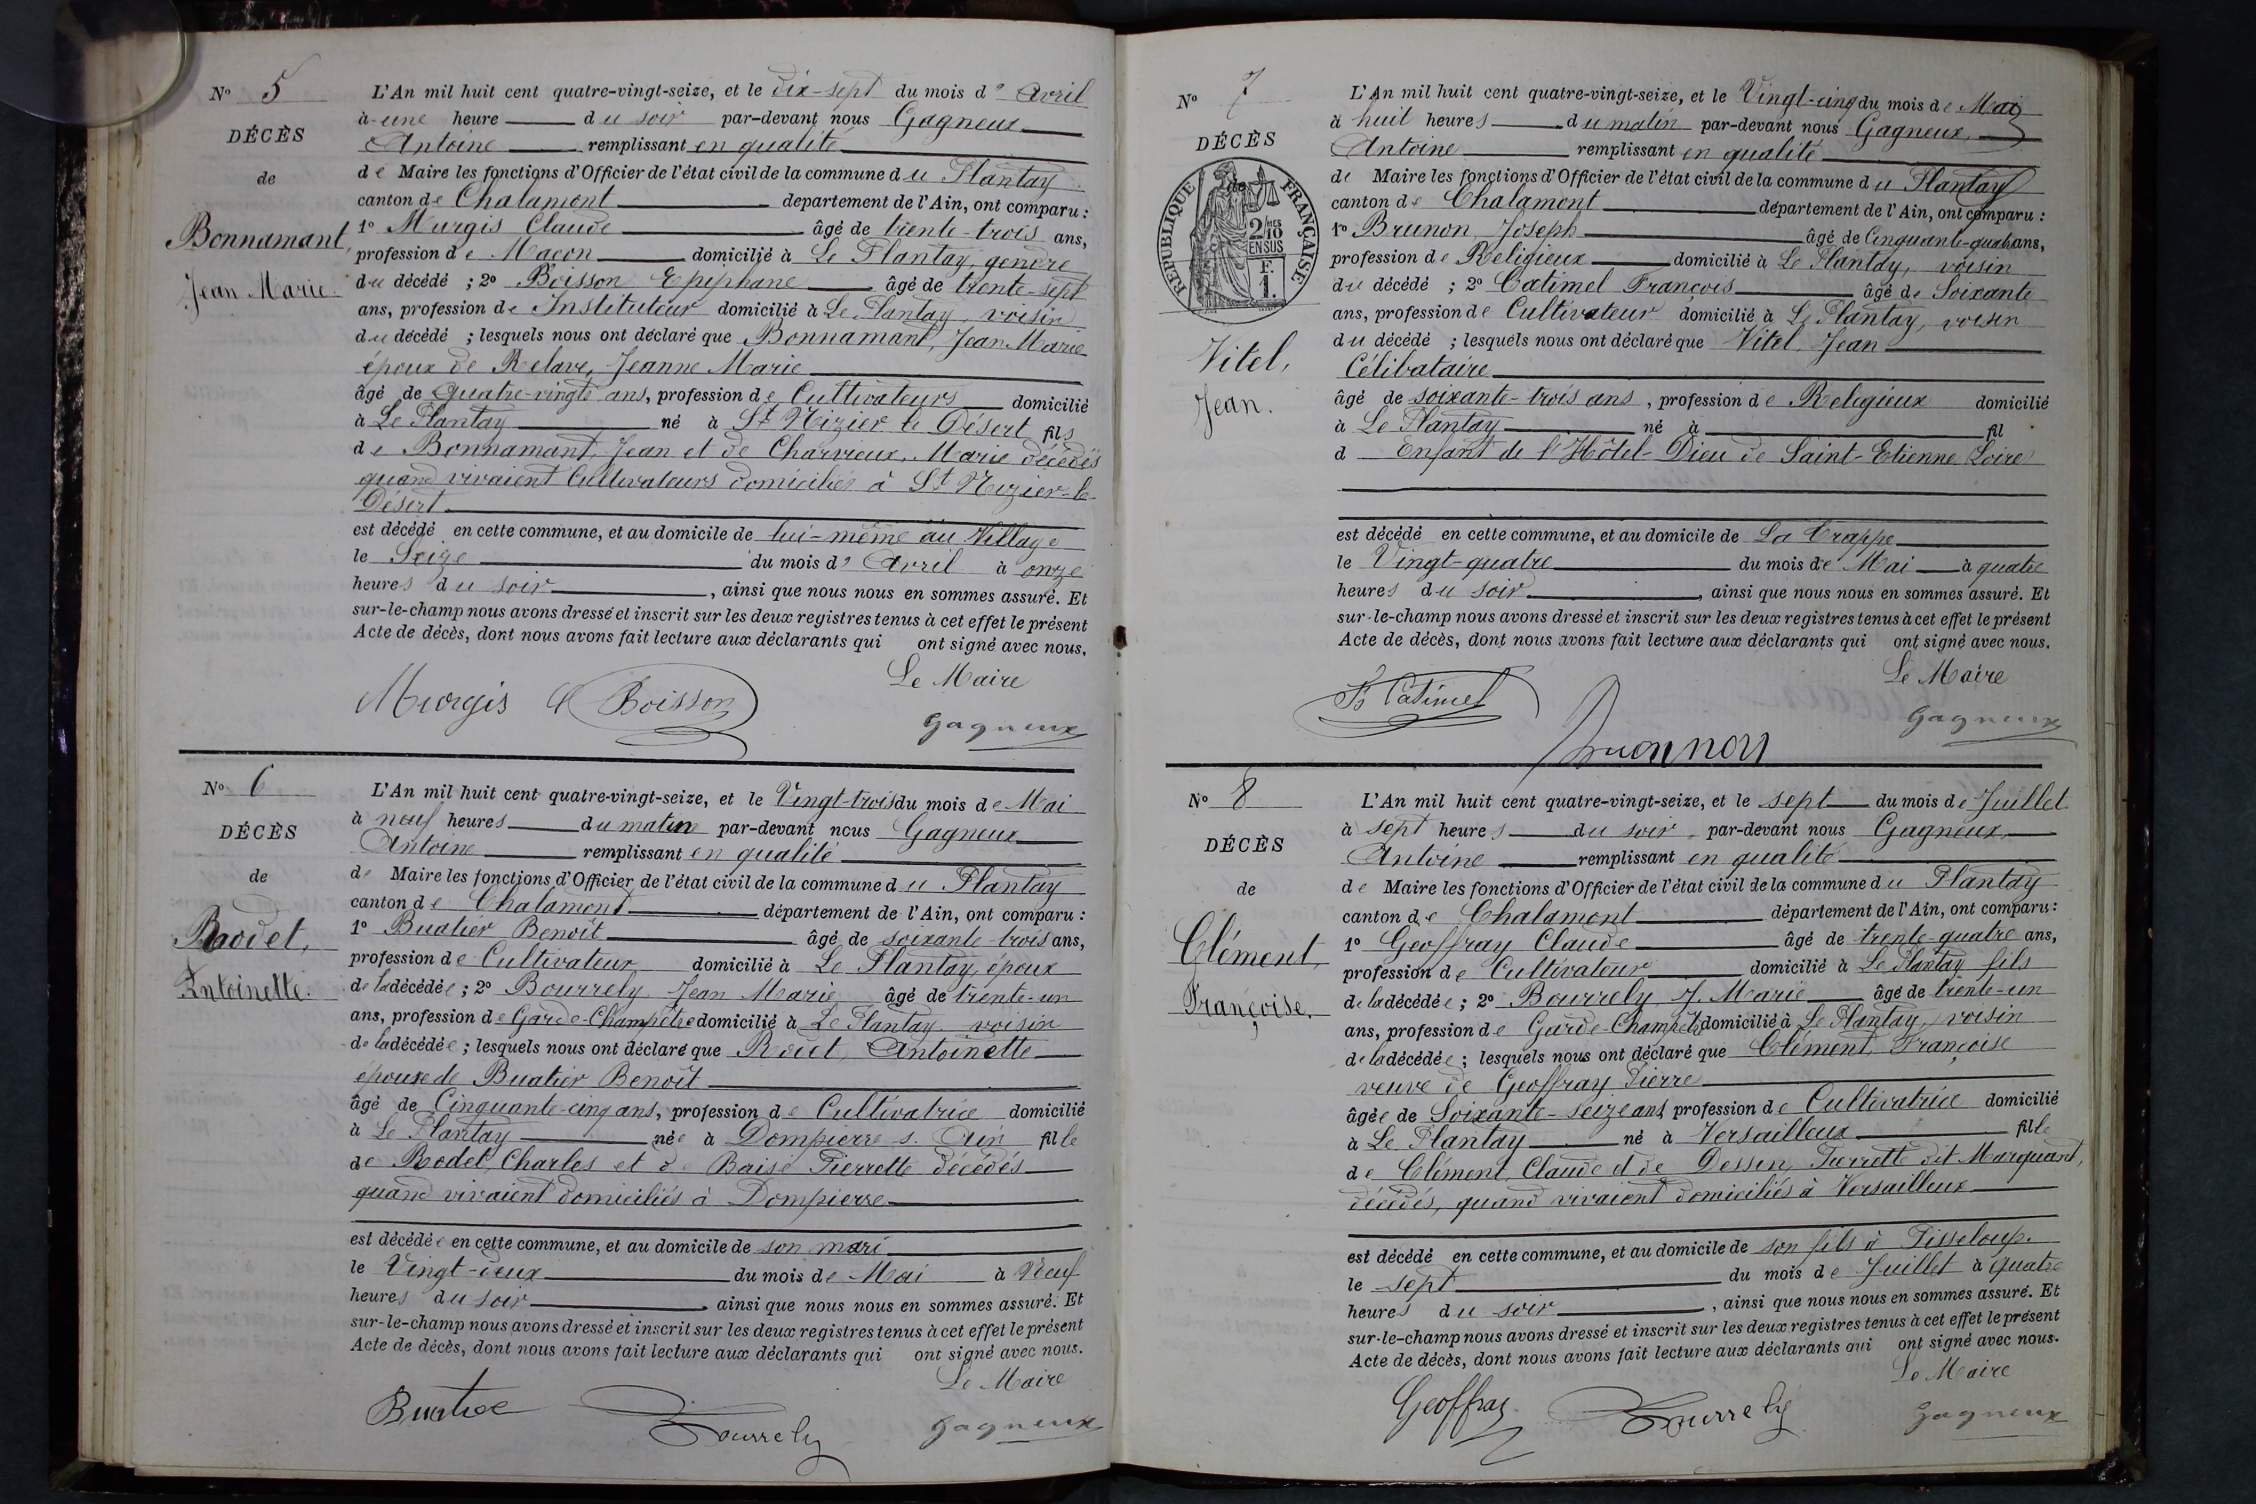 N° 5
DÉCÈS
de
Bonnamant,
Jean Marie.
L'An mil huit cent quatre-vingt-seize, et le dix-sept du mois d' Avril
à une heure du soir par-devant nous Gagneux
Antoine remplissant en qualité
de Maire les fonctions d'Officier de l'état civil de la commune du Plantay
canton de Chalamont departement de l'Ain, ont comparu :
1° Murgis Claude âgé de trente-trois ans,
profession de Maçon domicilié à Le Plantay, gendre
du décédé ; 2° Boisson Epiphane âgé de trente-sept
ans, profession de Instituteur domicilié à Le Plantay, voisin
du décédé ; lesquels nous ont déclaré que Bonnamant, Jean Marie
époux de Relave, Jeanne Marie
âgé de quatre-vingts ans, profession de Cultivateurs domicilié
à Le Plantay né à St Nizier le Désert fils
de Bonnamant, Jean et de Charvieux, Marie décédés
quand vivaient Cultivateurs domiciliés à St Nizier-le-
Désert
est décédé en cette commune, et au domicile de lui-même au Village
le Seize du mois d' Avril à onze
heures du soir, ainsi que nous nous en sommes assuré. Et
sur-le-champ nous avons dressé et inscrit sur les deux registres tenus à cet effet le présent
Acte de décès, dont nous avons fait lecture aux déclarants qui ont signé avec nous.
Le Maire
Murgis E Boisson Gagneux
N° 6
DÉCÈS
de
Rodet,
Antoinette.
L'An mil huit cent quatre-vingt-seize, et le Vingt-trois du mois de Mai
à neuf heures du matin par-devant nous Gagneux
Antoine remplissant en qualité
de Maire les fonctions d'Officier de l'état civil de la commune du Plantay
canton de Chalamont département de l'Ain, ont comparu :
1° Buatier Benoît âgé de soixante-trois ans,
profession de Cultivateur domicilié à Le Plantay, époux
de la décédée ; 2° Bourrely Jean Marie âgé de trente-un
ans, profession de Garde-Champêtre domicilié à Le Plantay voisin
de la décédée ; lesquels nous ont déclaré que Rodet, Antoinette
épouse de Buatier Benoît
âgé de Cinquante-cinq ans, profession de Cultivatrice domicilié
à Le Plantay née à Dompierre s. Ain fille
de Rodet, Charles et de Baise Pierrette décédés
quand vivaient domiciliés à Dompierre
est décédée en cette commune, et au domicile de son mari
le Vingt-deux du mois de Mai à Neuf
heures du soir, ainsi que nous nous en sommes assuré. Et
sur-le-champ nous avons dressé et inscrit sur les deux registres tenus à cet effet le présent
Acte de décès, dont nous avons fait lecture aux déclarants qui ont signé avec nous.
Le Maire
Buatier Bourrely Gagneux
N° 7
DÉCÈS
de
RÉPUBLIQUE FRANÇAISE
2/10 EN SUS
F. 1.
Vitel,
Jean.
L'An mil huit cent quatre-vingt-seize, et le Vingt-cinq du mois de Mai
à huit heures du matin par-devant nous Gagneux,
Antoine remplissant en qualité
de Maire les fonctions d'Officier de l'état civil de la commune du Plantay
canton de Chalamont département de l'Ain, ont comparu :
1° Brunon Joseph âgé de Cinquante-quatre ans,
profession de Religieux domicilié à Le Plantay, voisin
du décédé ; 2° Catimel François âgé de Soixante
ans, profession de Cultivateur domicilié à Le Plantay, voisin
du décédé ; lesquels nous ont déclaré que Vitel Jean
Célibataire
âgé de soixante-trois ans, profession de Religieux domicilié
à Le Plantay né à fil
d Enfant de l'Hôtel-Dieu de Saint-Etienne (Loire)
est décédé en cette commune, et au domicile de La Trappe
le Vingt-quatre du mois de Mai à quatre
heures du soir, ainsi que nous nous en sommes assuré. Et
sur-le-champ nous avons dressé et inscrit sur les deux registres tenus à cet effet le présent
Acte de décès, dont nous avons fait lecture aux déclarants qui ont signé avec nous.
Le Maire
Fs Catimel Gagneux
Brunon
N° 8
DÉCÈS
de
Clément,
Françoise.
L'An mil huit cent quatre-vingt-seize, et le sept du mois de Juillet
à sept heures du soir par-devant nous Gagneux,
Antoine remplissant en qualité
de Maire les fonctions d'Officier de l'état civil de la commune du Plantay
canton de Chalamont département de l'Ain, ont comparu :
1° Geoffray Claude âgé de trente-quatre ans,
profession de Cultivateur domicilié à Le Plantay fils
de la décédée ; 2° Bourrely J. Marie âgé de trente-un
ans, profession de Garde-Champêtre domicilié à Le Plantay, voisin
de la décédée ; lesquels nous ont déclaré que Clément, Françoise
veuve de Geoffray Pierre
âgée de Soixante-seize ans, profession de Cultivatrice domicilié
à Le Plantay né à Versailleux fille
de Clément, Claude et de Dessen, Pierrette dit Marquant,
décédés, quand vivaient domiciliés à Versailleux
est décédé en cette commune, et au domicile de son fils à Pisseloup.
le sept du mois de Juillet à quatre
heures du soir, ainsi que nous nous en sommes assuré. Et
sur-le-champ nous avons dressé et inscrit sur les deux registres tenus à cet effet le présent
Acte de décès, dont nous avons fait lecture aux déclarants qui ont signé avec nous.
Le Maire
Geoffray Bourrely Gagneux